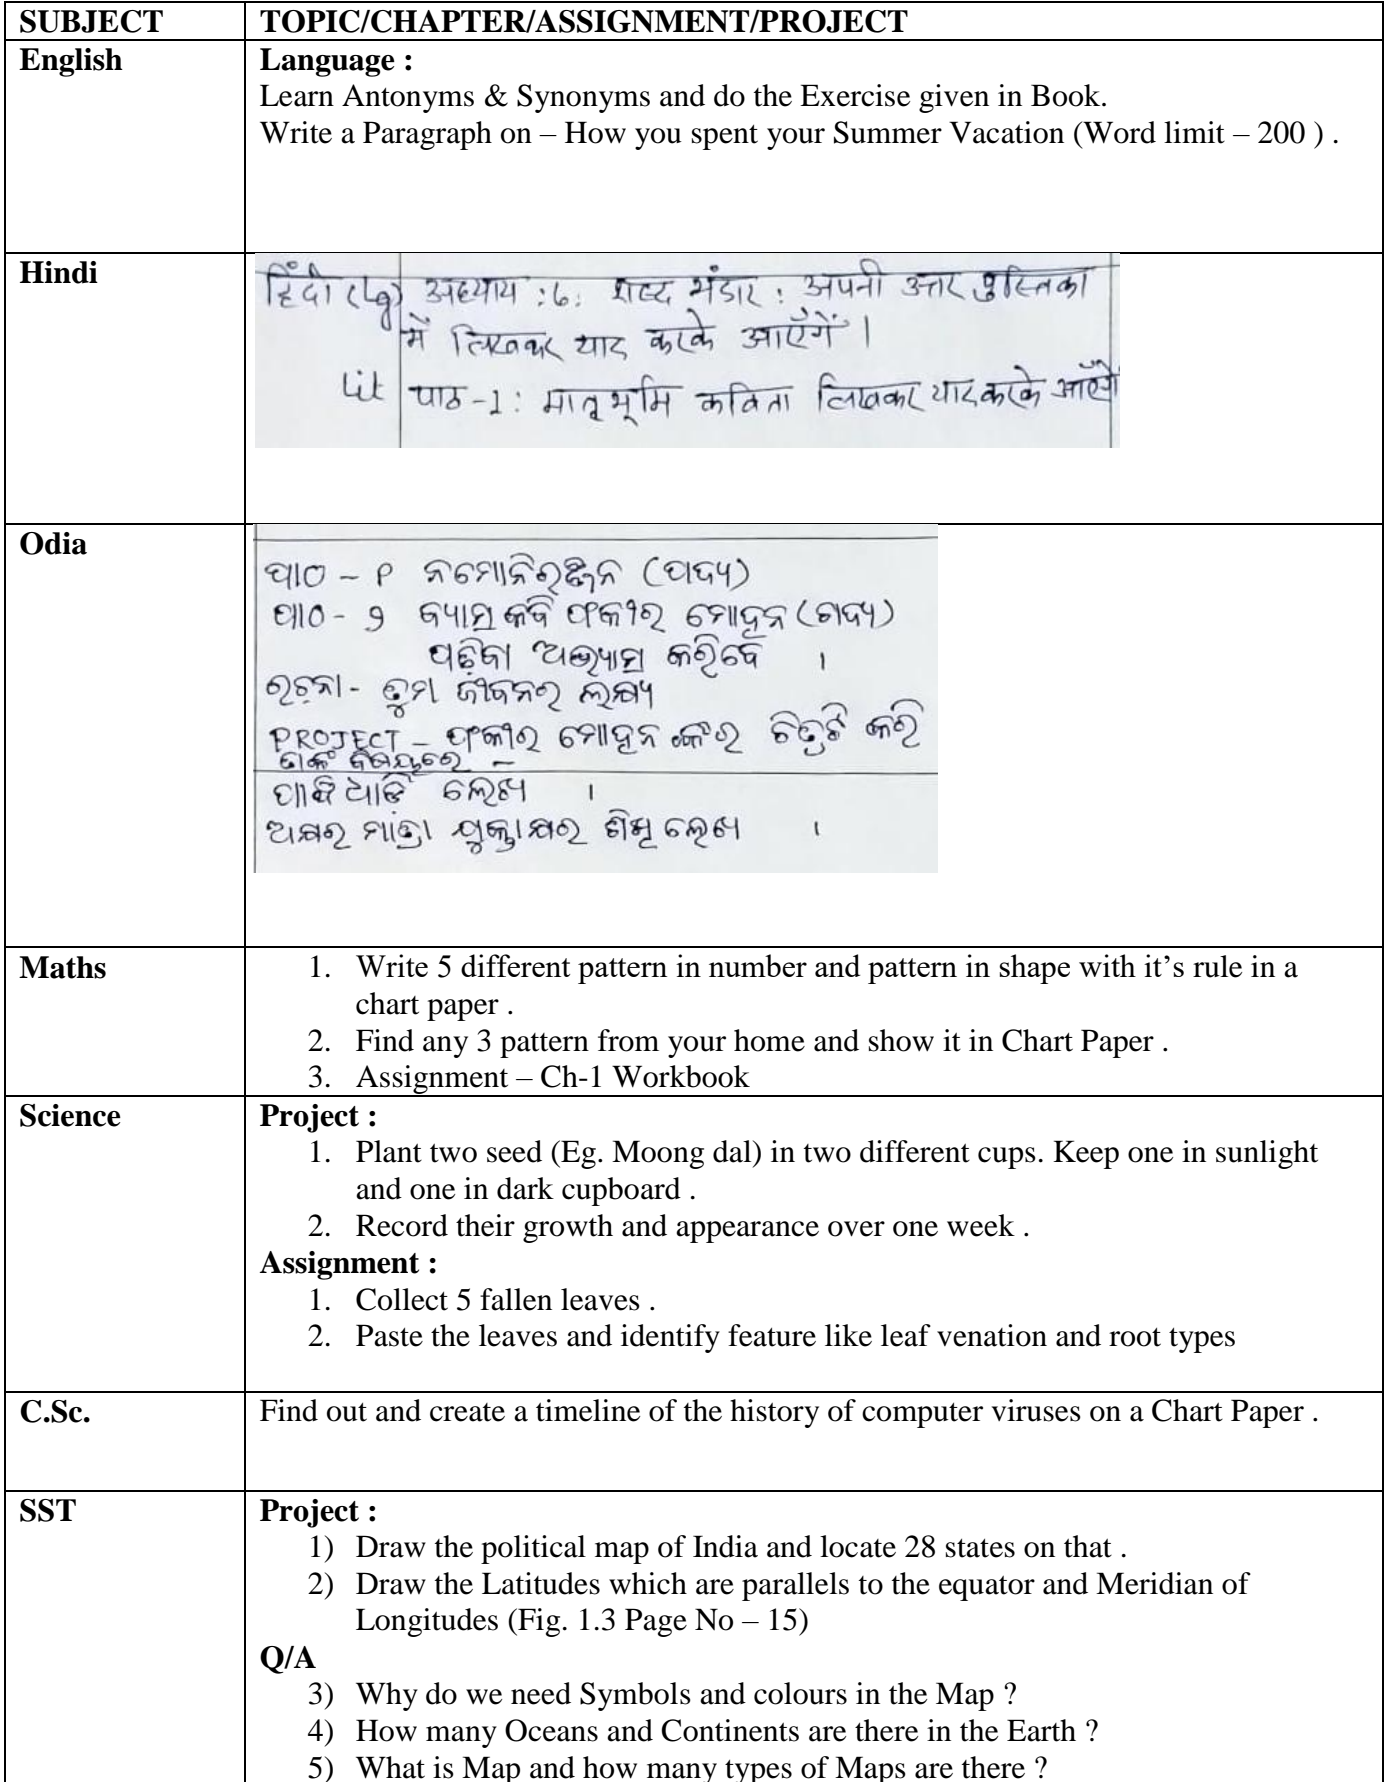 SUBJECT TOPIC/CHAPTER/ASSIGNMENT/PROJECT
English Language :
Learn Antonyms & Synonyms and do the Exercise given in Book.
Write a Paragraph on – How you spent your Summer Vacation (Word limit – 200 ) .
Hindi
हिंदी (Lg) अध्याय :6: शब्द भंडार : अपनी उत्तर पुस्तिका
में लिखकर याद करके आएँगें ।
Lit पाठ-1: मातृभूमि कविता लिखकर याद करके आएँगे
Odia
ପାଠ – ୧ ନମୋନିରଞ୍ଜନ (ପଦ୍ୟ)
ପାଠ - ୨ ବ୍ୟାସକବି ଫକୀର ମୋହନ (ଗଦ୍ୟ)
ପଢ଼ିବା ଅଭ୍ୟାସ କରିବେ ।
ରଚନା - ତୁମ ଜୀବନର ଲକ୍ଷ୍ୟ
PROJECT – ଫକୀର ମୋହନ ଙ୍କର ଚିତ୍ରଟି କରି
ତାଙ୍କ ବିଷୟରେ –
ପାଞ୍ଚି ଧାଡ଼ି ଲେଖ ।
ଅକ୍ଷର ମାତ୍ରା ଯୁକ୍ତାକ୍ଷର ଶିଖି ଲେଖ ।
Maths 1. Write 5 different pattern in number and pattern in shape with it’s rule in a
chart paper .
2. Find any 3 pattern from your home and show it in Chart Paper .
3. Assignment – Ch-1 Workbook
Science Project :
1. Plant two seed (Eg. Moong dal) in two different cups. Keep one in sunlight
and one in dark cupboard .
2. Record their growth and appearance over one week .
Assignment :
1. Collect 5 fallen leaves .
2. Paste the leaves and identify feature like leaf venation and root types
C.Sc. Find out and create a timeline of the history of computer viruses on a Chart Paper .
SST Project :
1) Draw the political map of India and locate 28 states on that .
2) Draw the Latitudes which are parallels to the equator and Meridian of
Longitudes (Fig. 1.3 Page No – 15)
Q/A
3) Why do we need Symbols and colours in the Map ?
4) How many Oceans and Continents are there in the Earth ?
5) What is Map and how many types of Maps are there ?